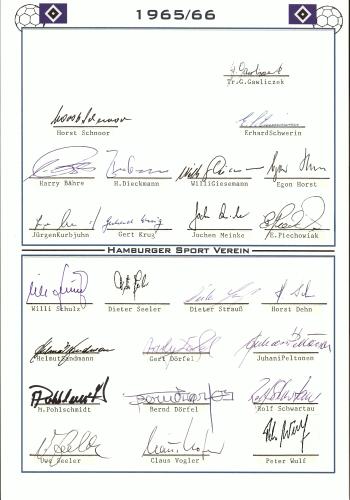 1965/66
Tr.G.Gawliczek
Horst Schnoor
ErhardSchwerin
Harry Bähre
H.Dieckmann
WilliGiesemann
Egon Horst
JürgenKurbjuhn
Gert Krug
Jochen Meinke
E.Piechowiak
Hamburger Sport Verein
Willi Schulz
Dieter Seeler
Dieter Strauß
Horst Dehn
HelmutSandmann
Gert Dörfel
JuhaniPeltonen
M.Pohlschmidt
Bernd Dörfel
Rolf Schwartau
Uwe Seeler
Claus Vogler
Peter Wulf